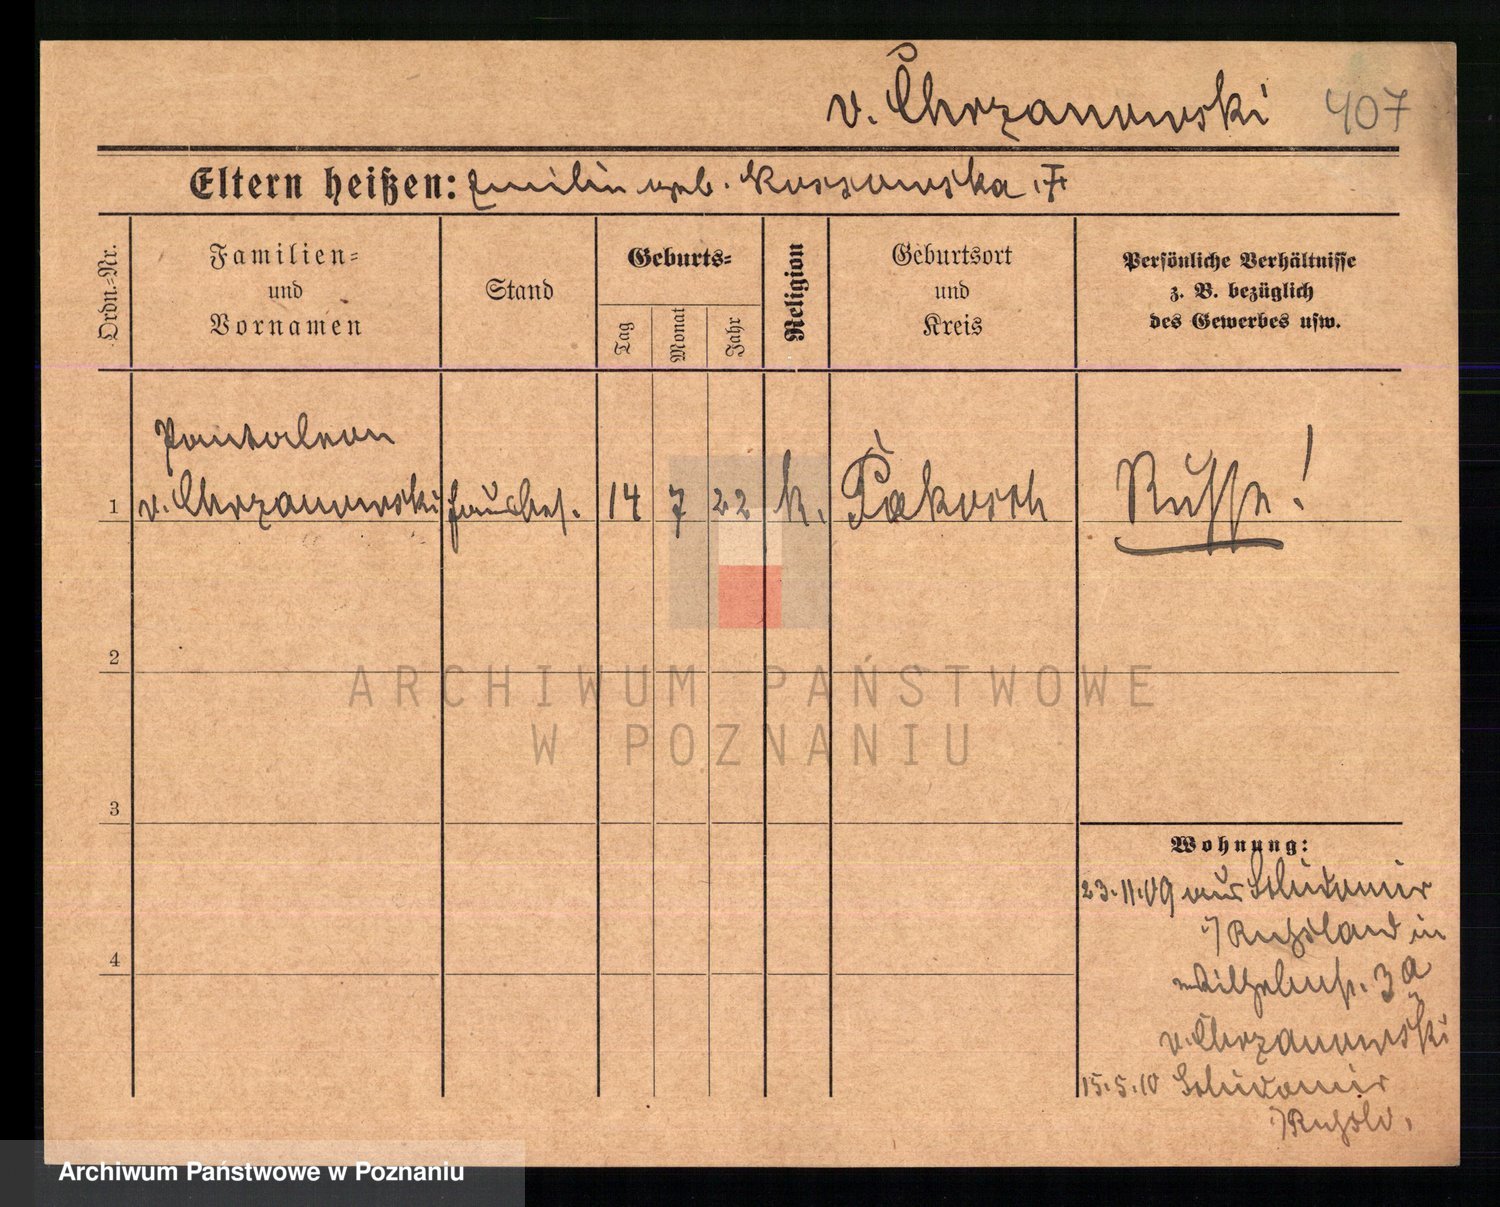 v. Chrzanowski 407
Eltern heißen: Emilie geb. Kossowska. †
Ordn.-Nr.
Familien-
und
Vornamen
Stand
Geburts-
Tag
Monat
Jahr
Religion
Geburtsort
und
Kreis
Persönliche Verhältnisse
z. B. bezüglich
des Gewerbes usw.
Pantaleon
1 v. Chrzanowski Hausbes. 14 7 22 k. Pakosch Russe!
2
3
4
Wohnung:
23.11.09 aus
i/Russland in
Wilhelmstr. 3a
v. Chrzanowski
15.5.10
i/Russld.
ARCHIWUM PAŃSTWOWE
W POZNANIU
Archiwum Państwowe w Poznaniu